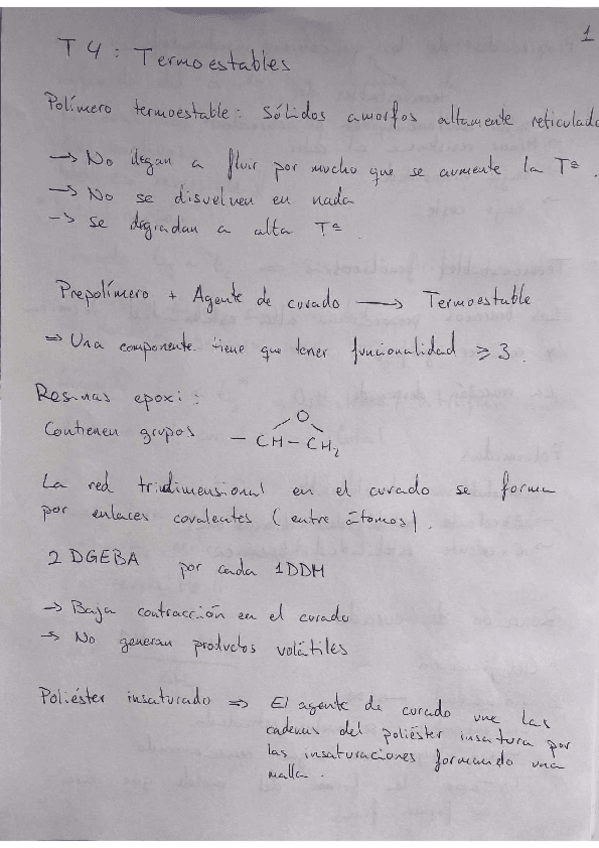 1
T4: Termoestables
Polímero termoestable: Sólidos amorfos altamente reticulado
→ No llegan a fluir por mucho que se aumente la Tª.
→ No se disuelven en nada
→ Se degradan a alta Tª.
Prepolímero + Agente de curado → Termoestable
⇒ Una componente tiene que tener funcionalidad ≥ 3.
Resinas epoxi:
O
Contienen grupos - CH - CH2
La red tridimensional en el curado se forma
por enlaces covalentes (entre átomos).
2 DGEBA por cada 1DDM
→ Baja contracción en el curado
→ No generan productos volátiles
Poliéster insaturado ⇒ El agente de curado une las
cadenas del poliéster insatura por
las insaturaciones formando una
malla.